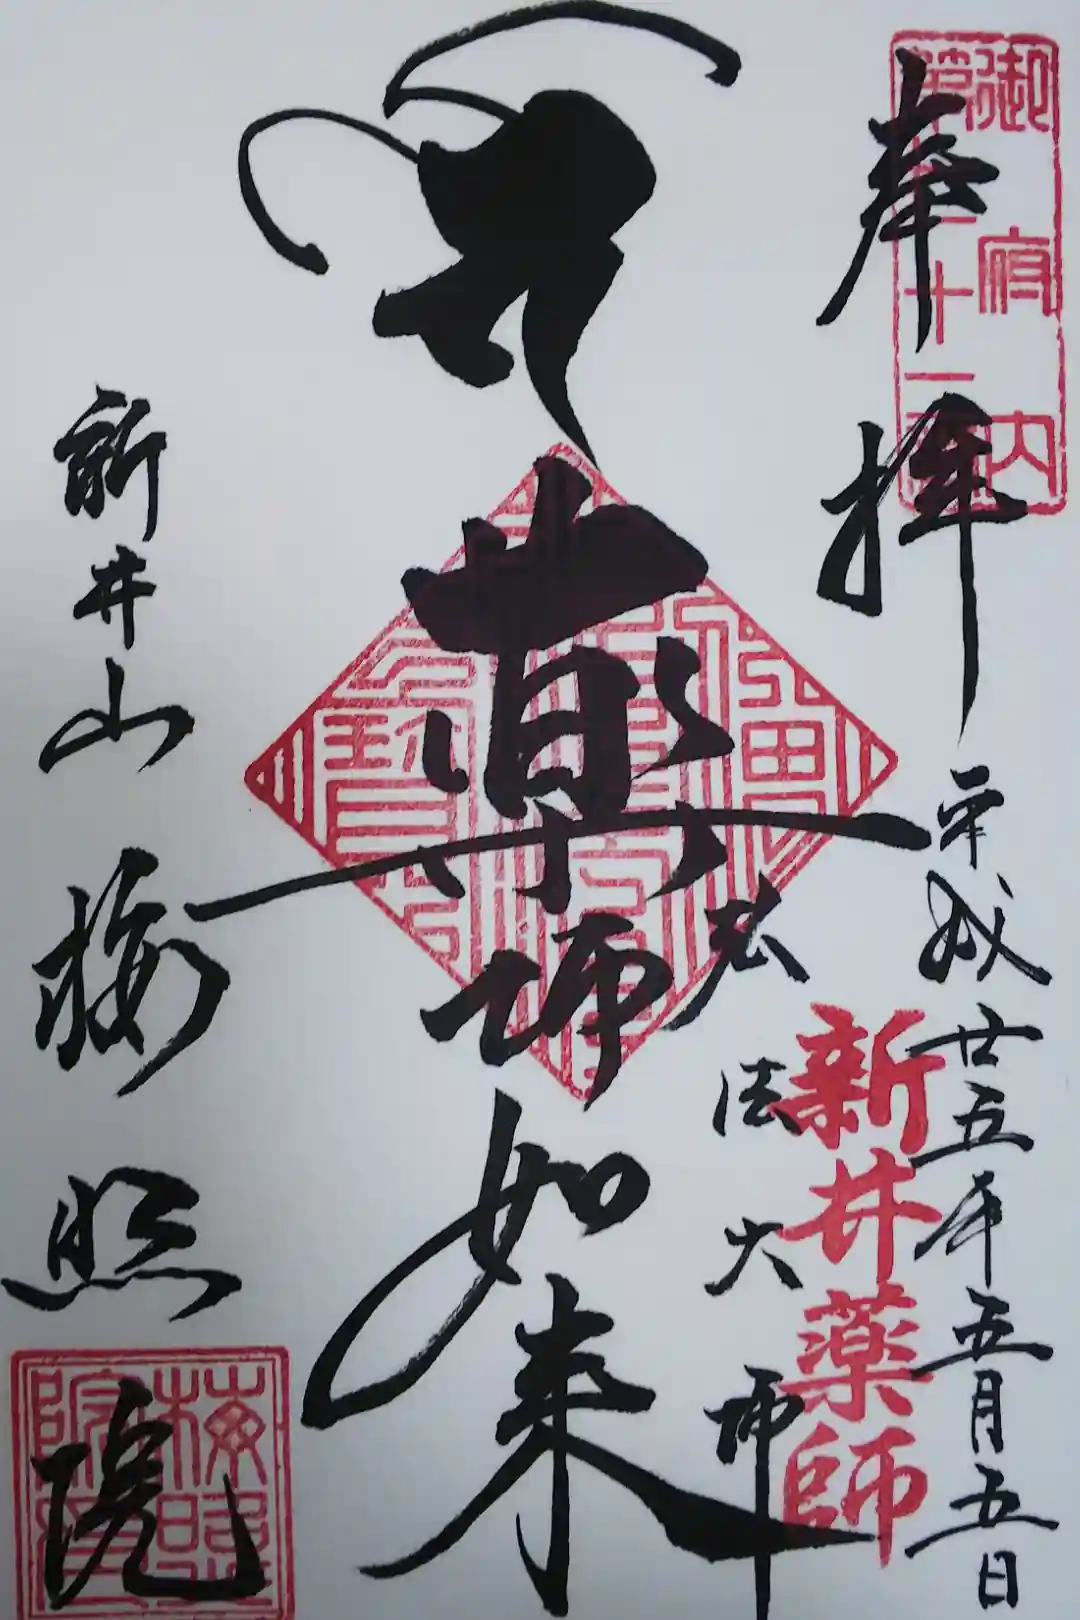 奉拝
御府内
第七十一番
平成廿五年五月五日
新井薬師
弘法大師
薬師如来
新井山
梅照院